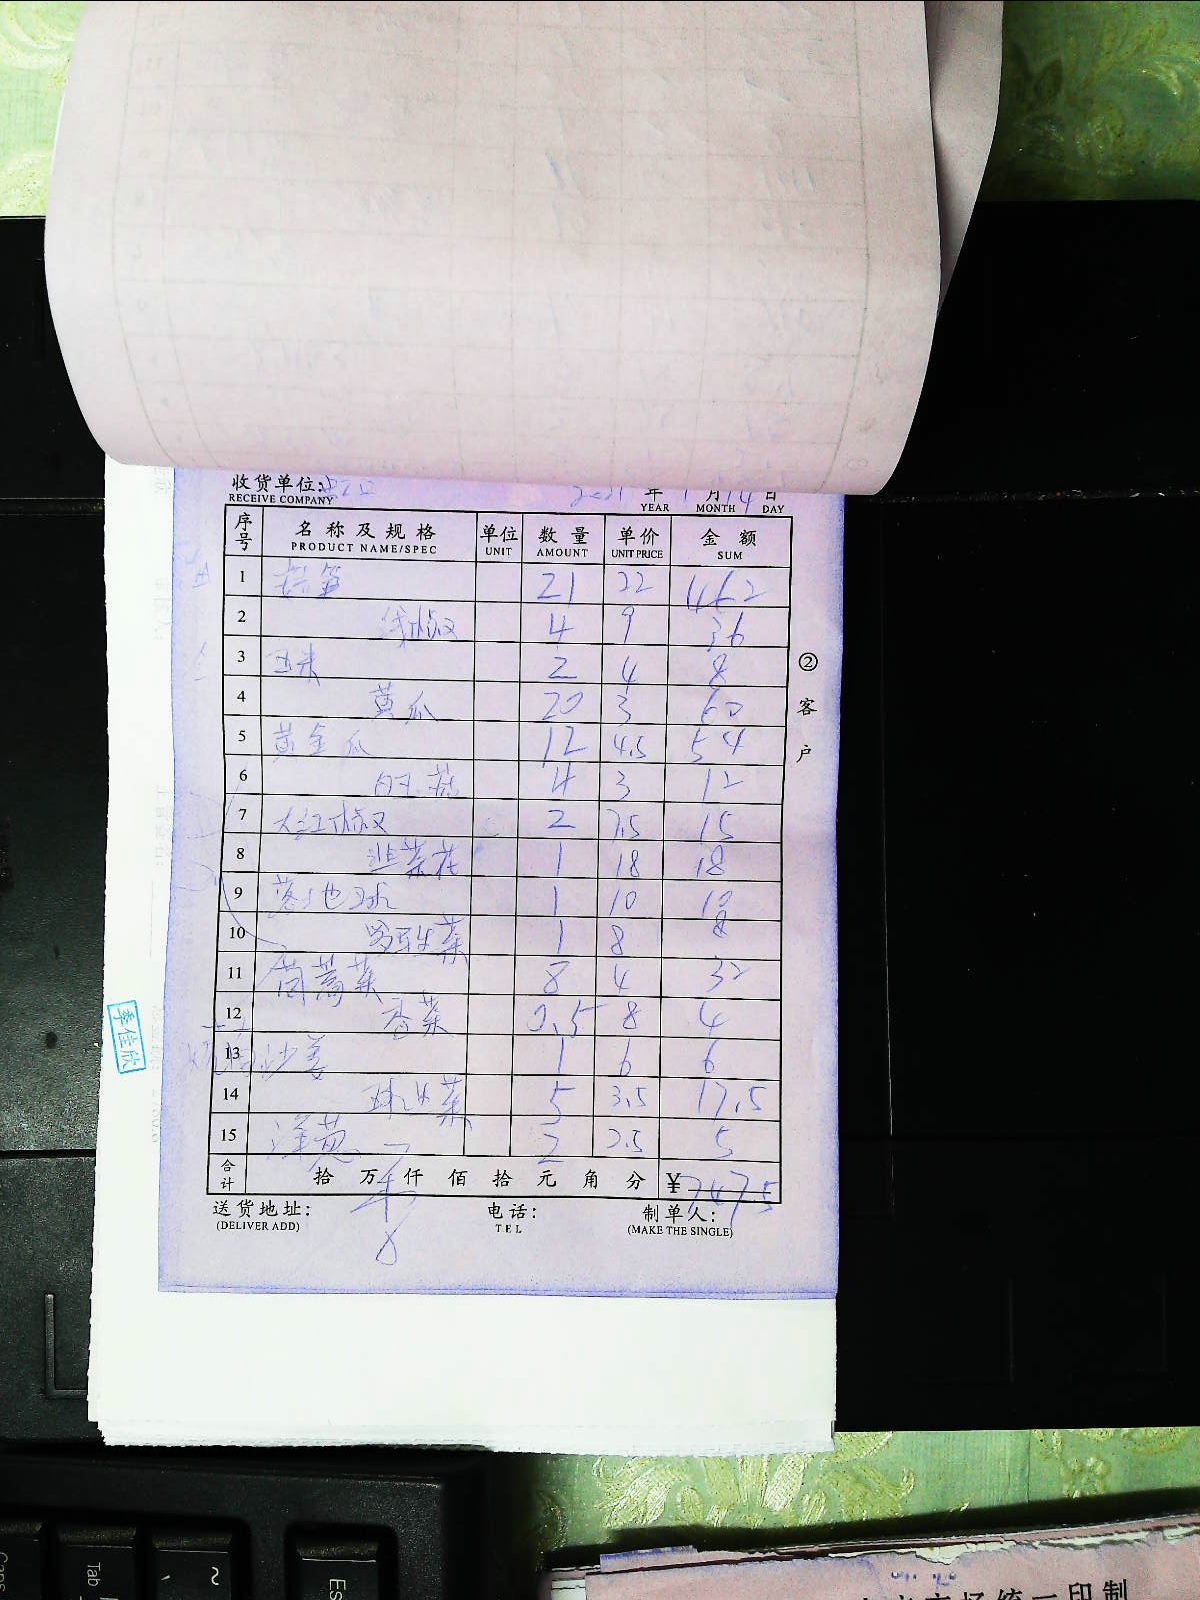 收货单位:
RECEIVE COMPANY
2021 年 1 月 14 日
YEAR MONTH DAY
序号 名称及规格 单位 数量 单价 金额
PRODUCT NAME/SPEC UNIT AMOUNT UNIT PRICE SUM
1 21 22 462
2 线椒 4 9 36
3 玉米 2 4 8
4 黄瓜 20 3 60
5 黄金瓜 12 4.5 54
6 4 3 12
7 大红椒 2 7.5 15
8 韭菜花 1 18 18
9 1 10 10
10 1 8 8
11 茼蒿菜 8 4 32
12 香菜 0.5 8 4
13 沙姜 1 6 6
14 菜 5 3.5 17.5
15 洋葱 2 2.5 5
合计 拾 万 仟 佰 拾 元 角 分 ¥747.5
送货地址: 电话: 制单人:
(DELIVER ADD) TEL (MAKE THE SINGLE)
②客户
李佳欣
Caps
Tab
~
Es
市场统一印制